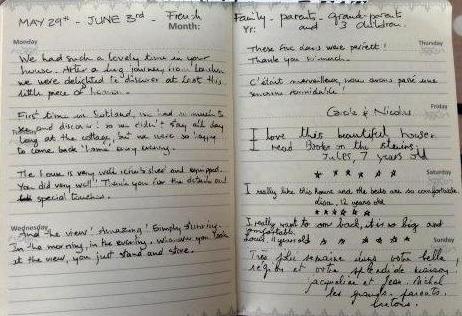 MAY 29th - JUNE 3rd French
Month:
Monday
We had such a lovely time in your
house. After a long journey from London
we were delighted to discover at last this
little piece of heaven.
First time in Scotland, we had so much to
see and discover so we didn't stay all day
long at the cottage, but we were so happy
to come back "home" every evening.
The house is very well furnished and equipped.
You did very well. Thank you for the details and
special touches.
Wednesday
And the view! Amazing! Simply stunning.
In the morning, in the evening, whenever you look
at the view, you just stand and stare.
Family - parents - grand-parents
Yr: and 3 children.
Thursday
These five days were perfect!
Thank you so much.
C'était merveilleux, nous avons passé une
semaine formidable!
Friday
& Nicolas
I love this beautiful house.
I read Books on the stairs.
Jules, 7 years old
Saturday
I really like this house and the beds are so comfortable.
12 years old
I really want to come back, it is so big and
comfortable.
11 years old
Sunday
Très belle semaine dans votre belle
région et votre splendide maison.
Jacqueline et Jean-Michel
les grands-parents
bretons.